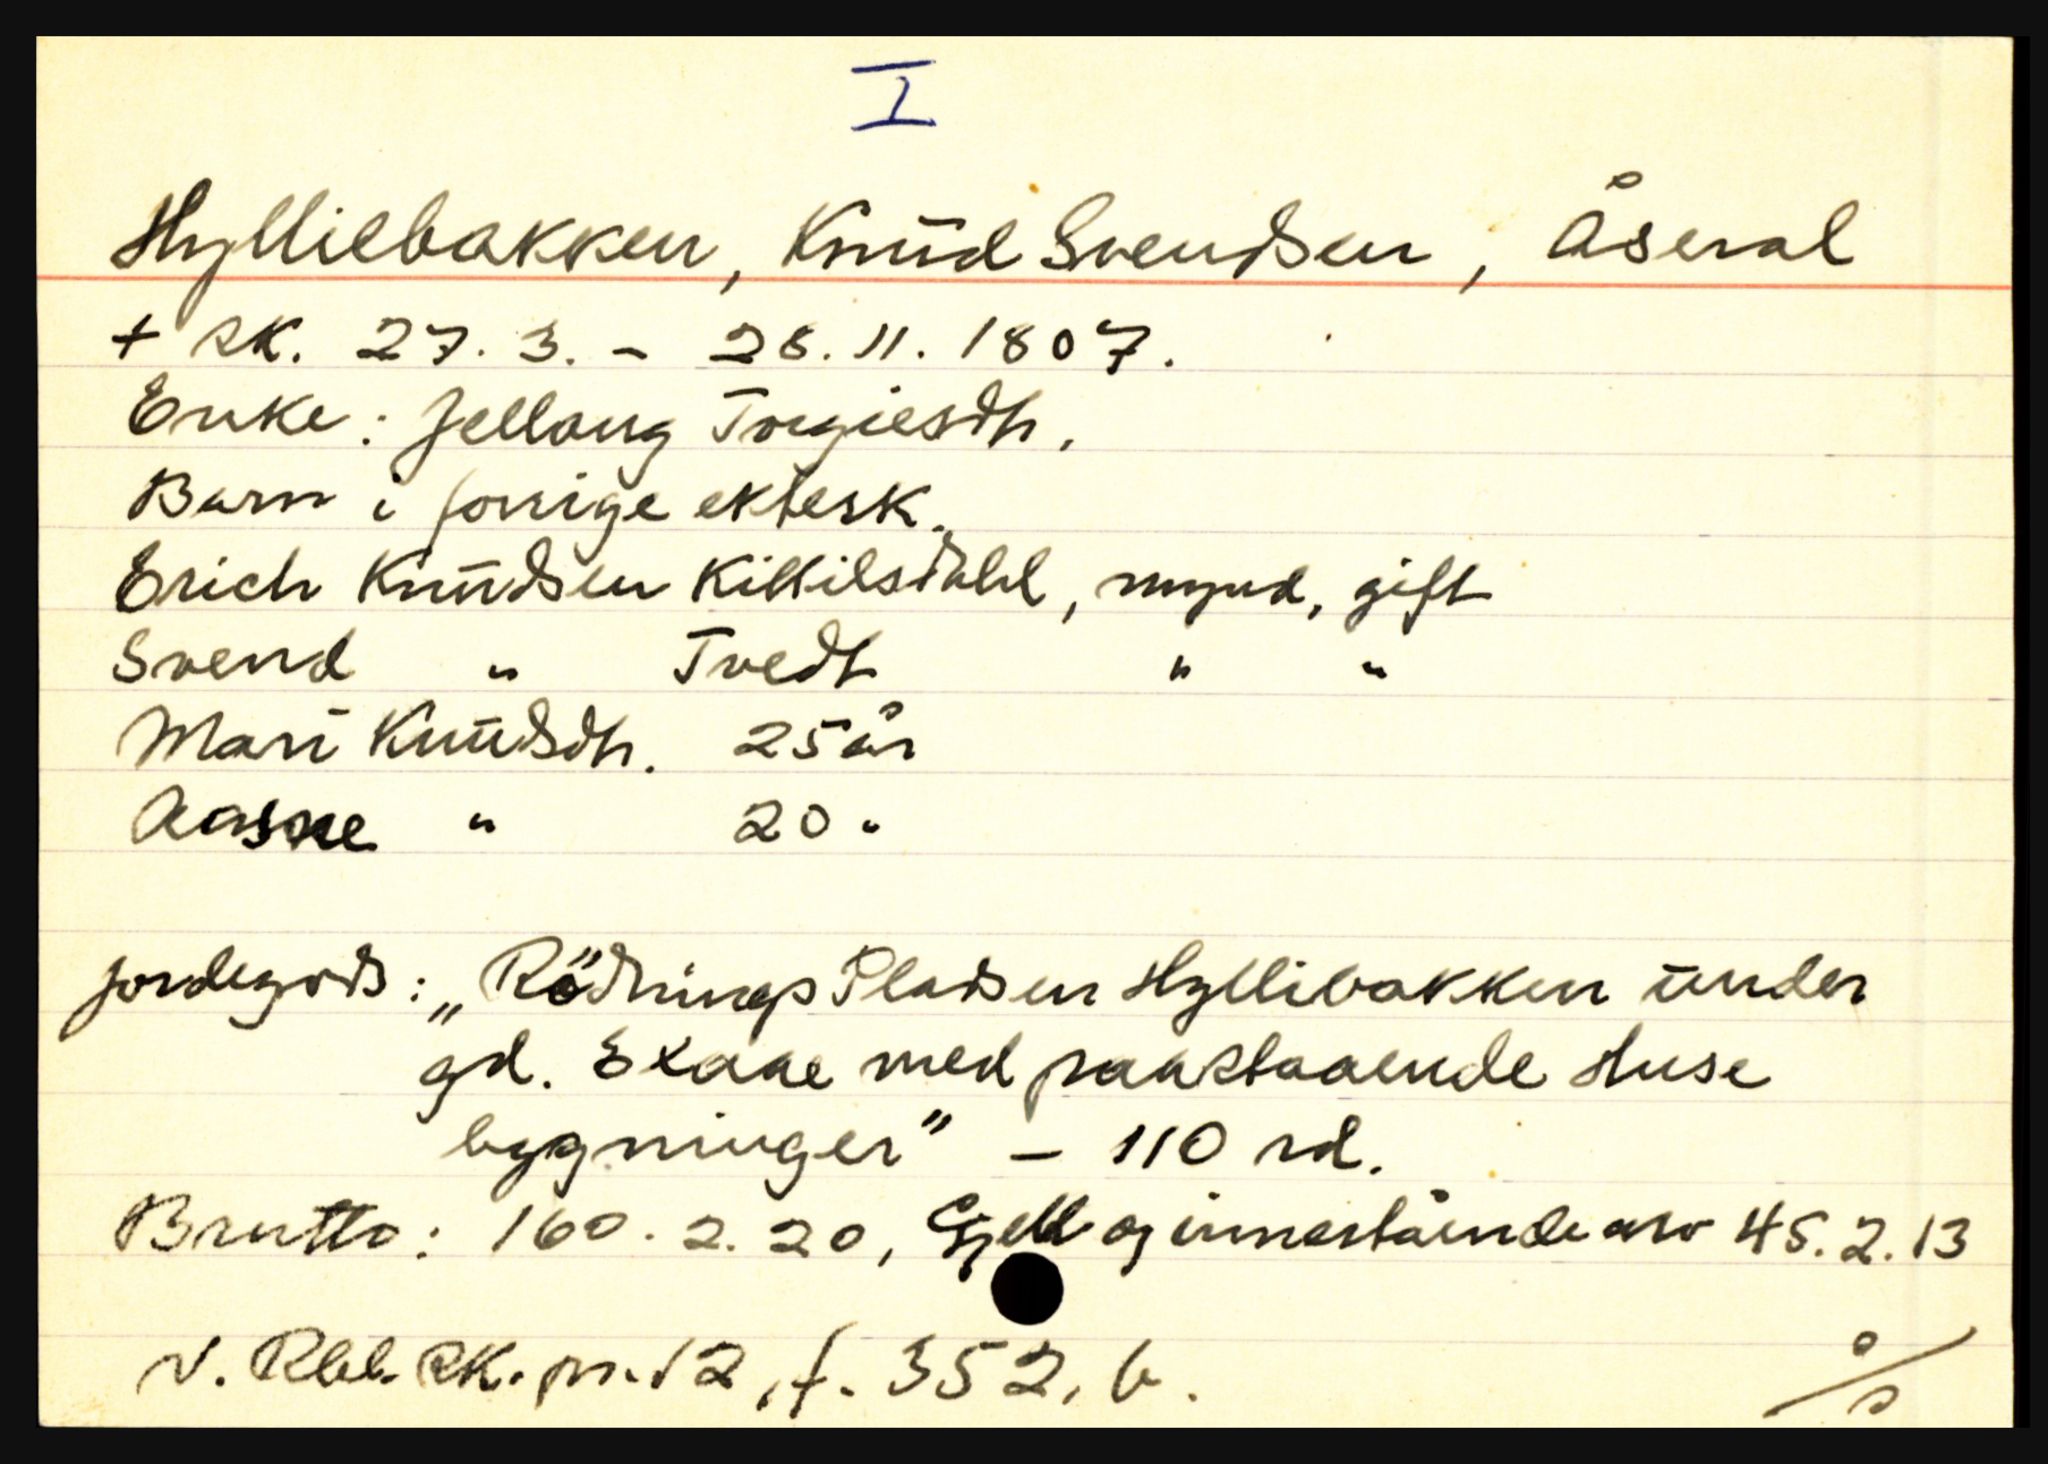 I
Hylliebakken, Knud Svendsen, Åseral
+ sk. 27. 3. - 28. 11. 1807.
Enke: Jellaug Torgiesdtr.
Barn i forrige ektesk.
Erich Knudsen Kittilsdahl, mynd, gift
Svend " Tvedt " "
Mari Knudsdtr. 25 år
Aasne " 20 "
Jordegods: „Rödnings Pladsen Hyllibakken under
gd. Exaae med paastaaende Huse
bygninger" - 110 rd.
Brutto: 160. 2. 20, Gjeld og innestående arv 45. 2. 13
N. Rbl. sk. pr. 12, f. 352, b.